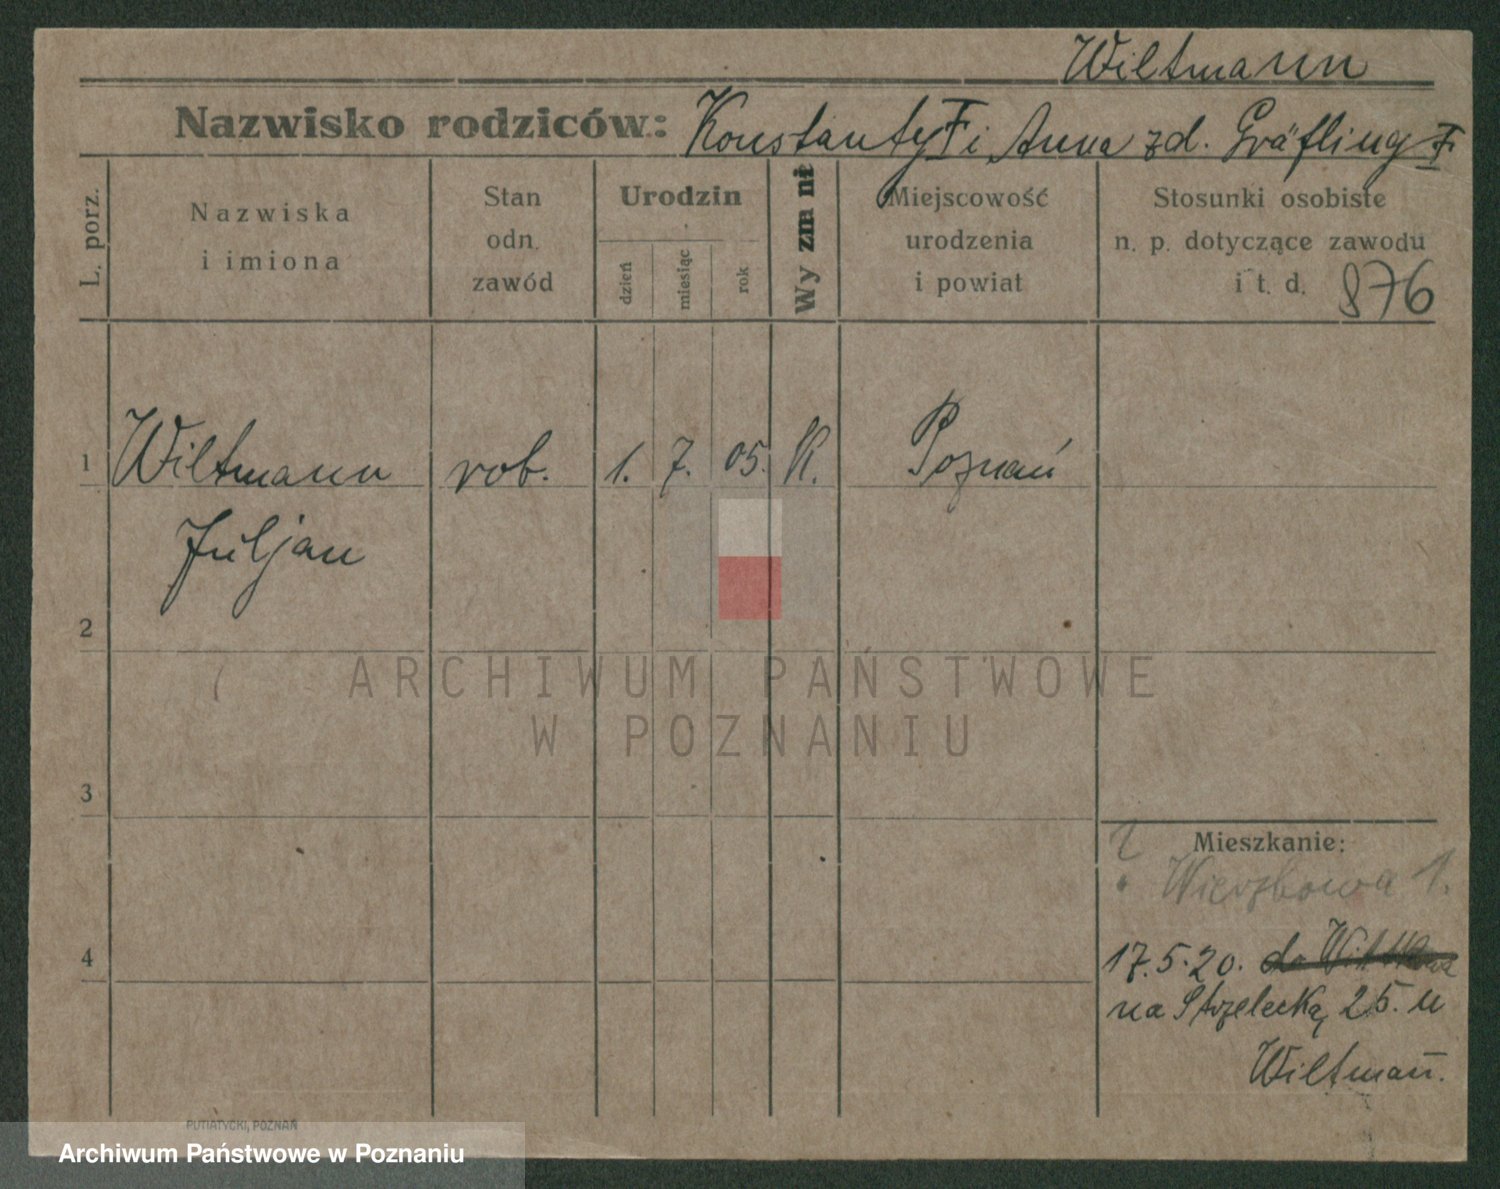 Wiltmann
Nazwisko rodziców: Konstanty i Anna zd. Gräfling
L. porz.
Nazwiska
i imiona
Stan
odn.
zawód
Urodzin
dzień
miesiąc
rok
Wy zm nı
Miejscowość
urodzenia
i powiat
Stosunki osobiste
n. p. dotyczące zawodu
i t. d. 876
1 Wiltmann rob. 1. 7. 05. K. Poznań
Juljan
2
ARCHIWUM PAŃSTWOWE
W POZNANIU
3
Mieszkanie:
Wierzbowa 1.
4
17.5.20. do
na Strzelecką 25. u
Wiltmann.
PUTIATYCKI, POZNAŃ
Archiwum Państwowe w Poznaniu